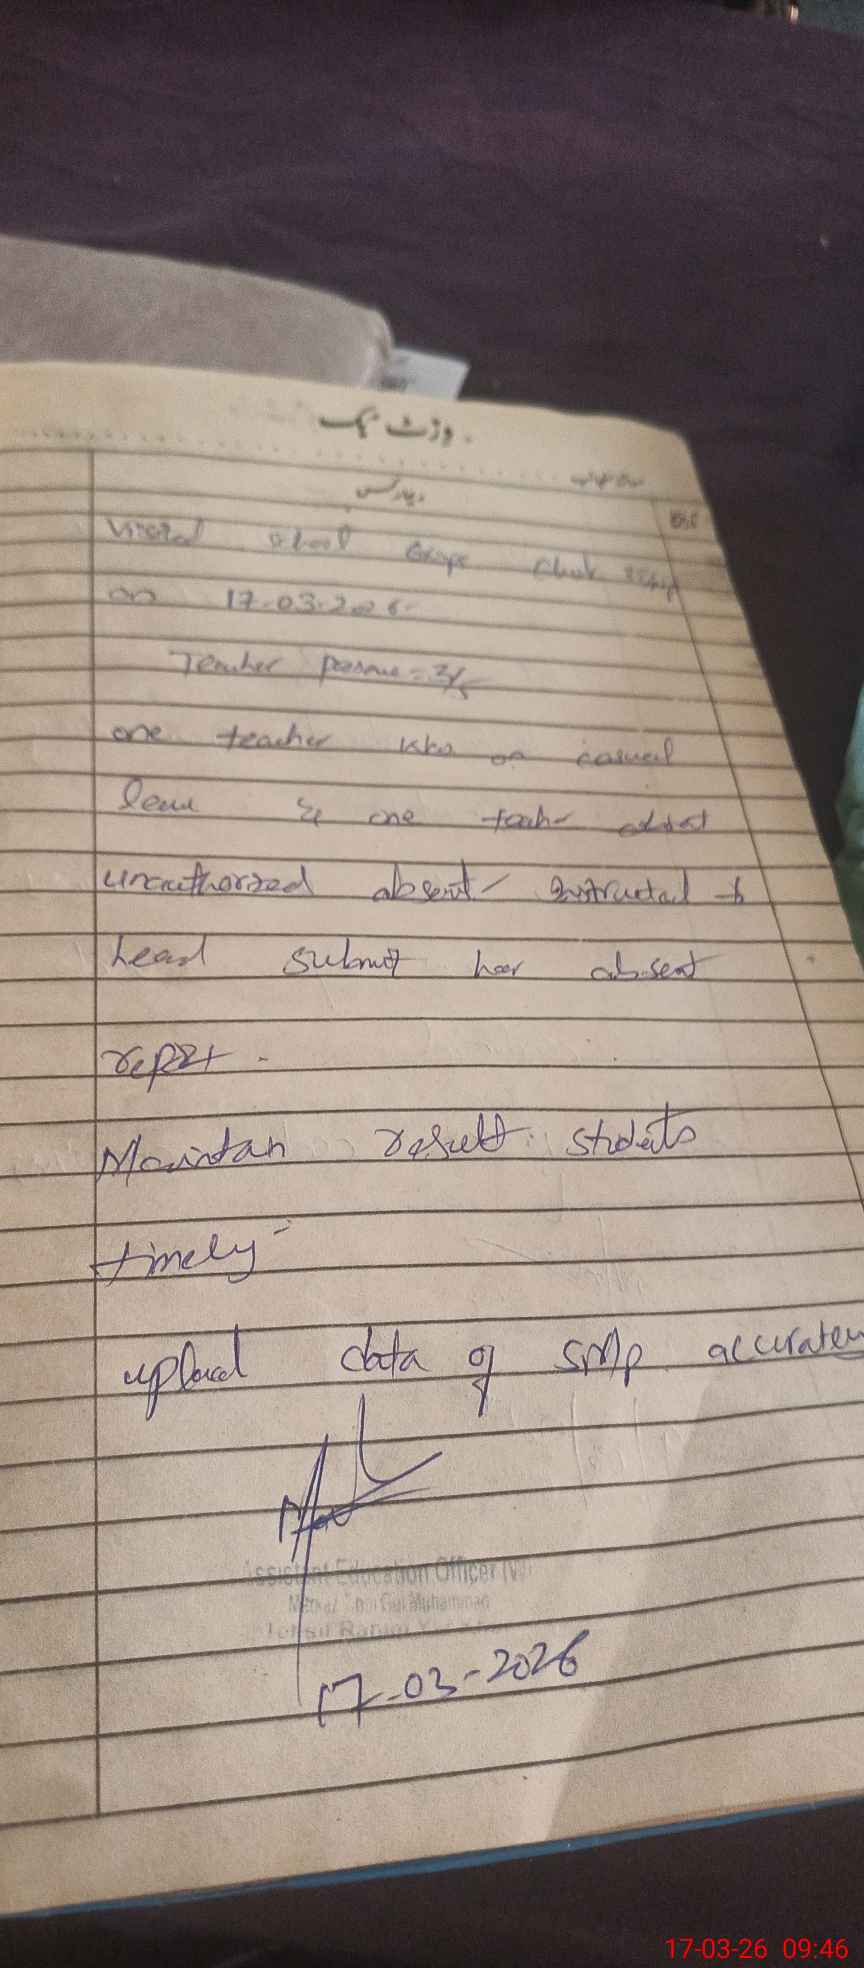 وزٹ بک
ریمارکس
Visited school
on 17-03-2026
Teacher
one teacher was on casual
leave & one teacher
unauthorized absent instructed to
head submit her absent
report.
Maintan result students
timely
upload data of SMP accurately
Assistant Education Officer (W)
Muhammad
Tehsil Rahim
17-03-2026
17-03-26 09:46